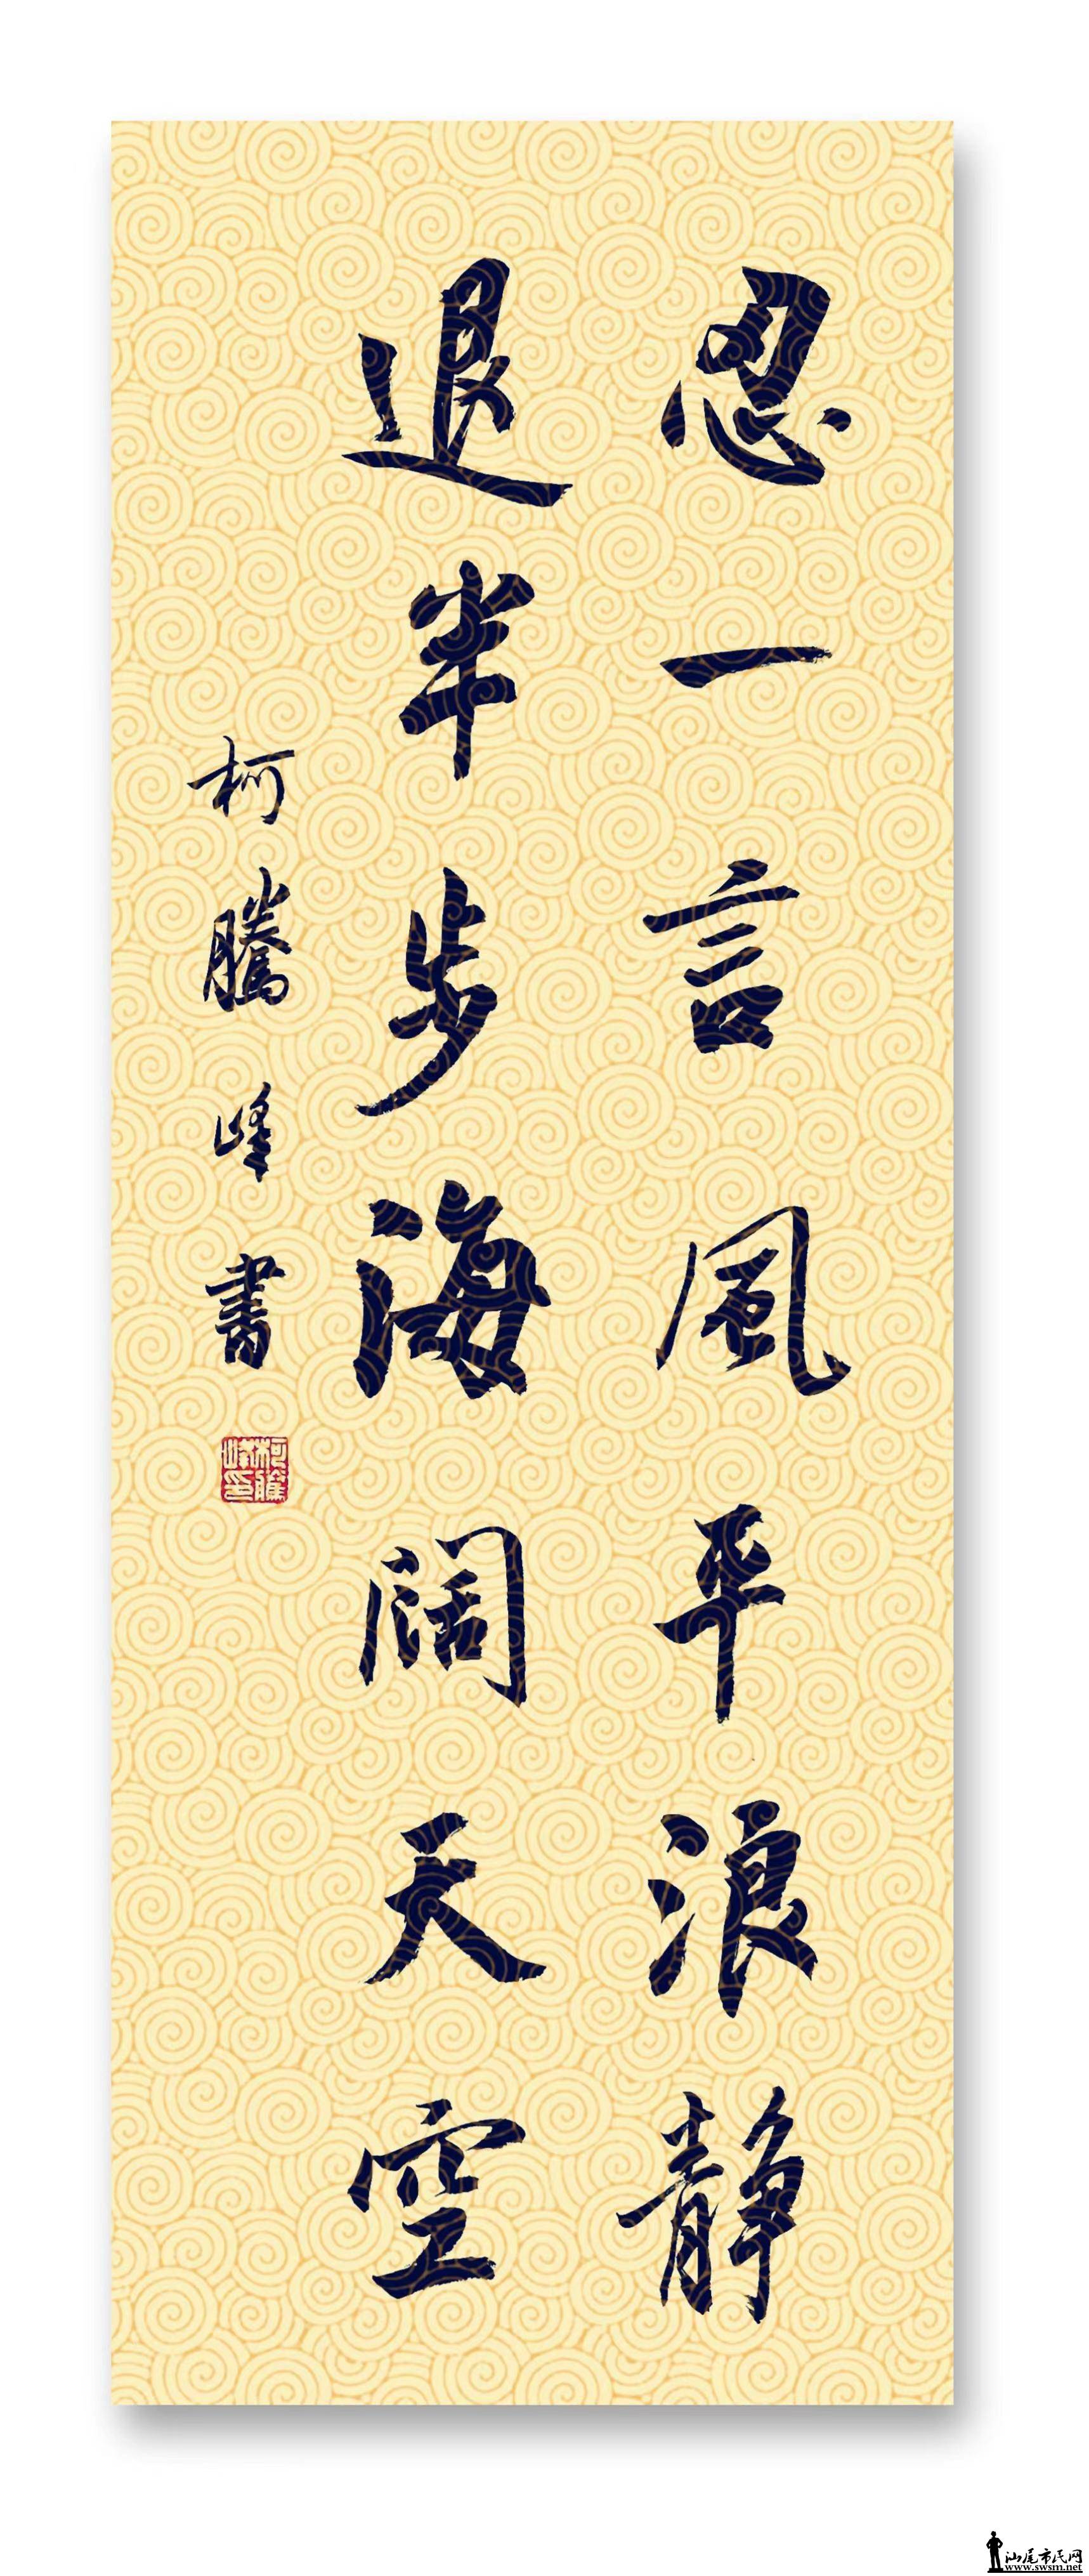 忍一言风平浪静
退半步海阔天空
柯騰峰書
柯騰峰印
汕尾市民网
www.swsm.net